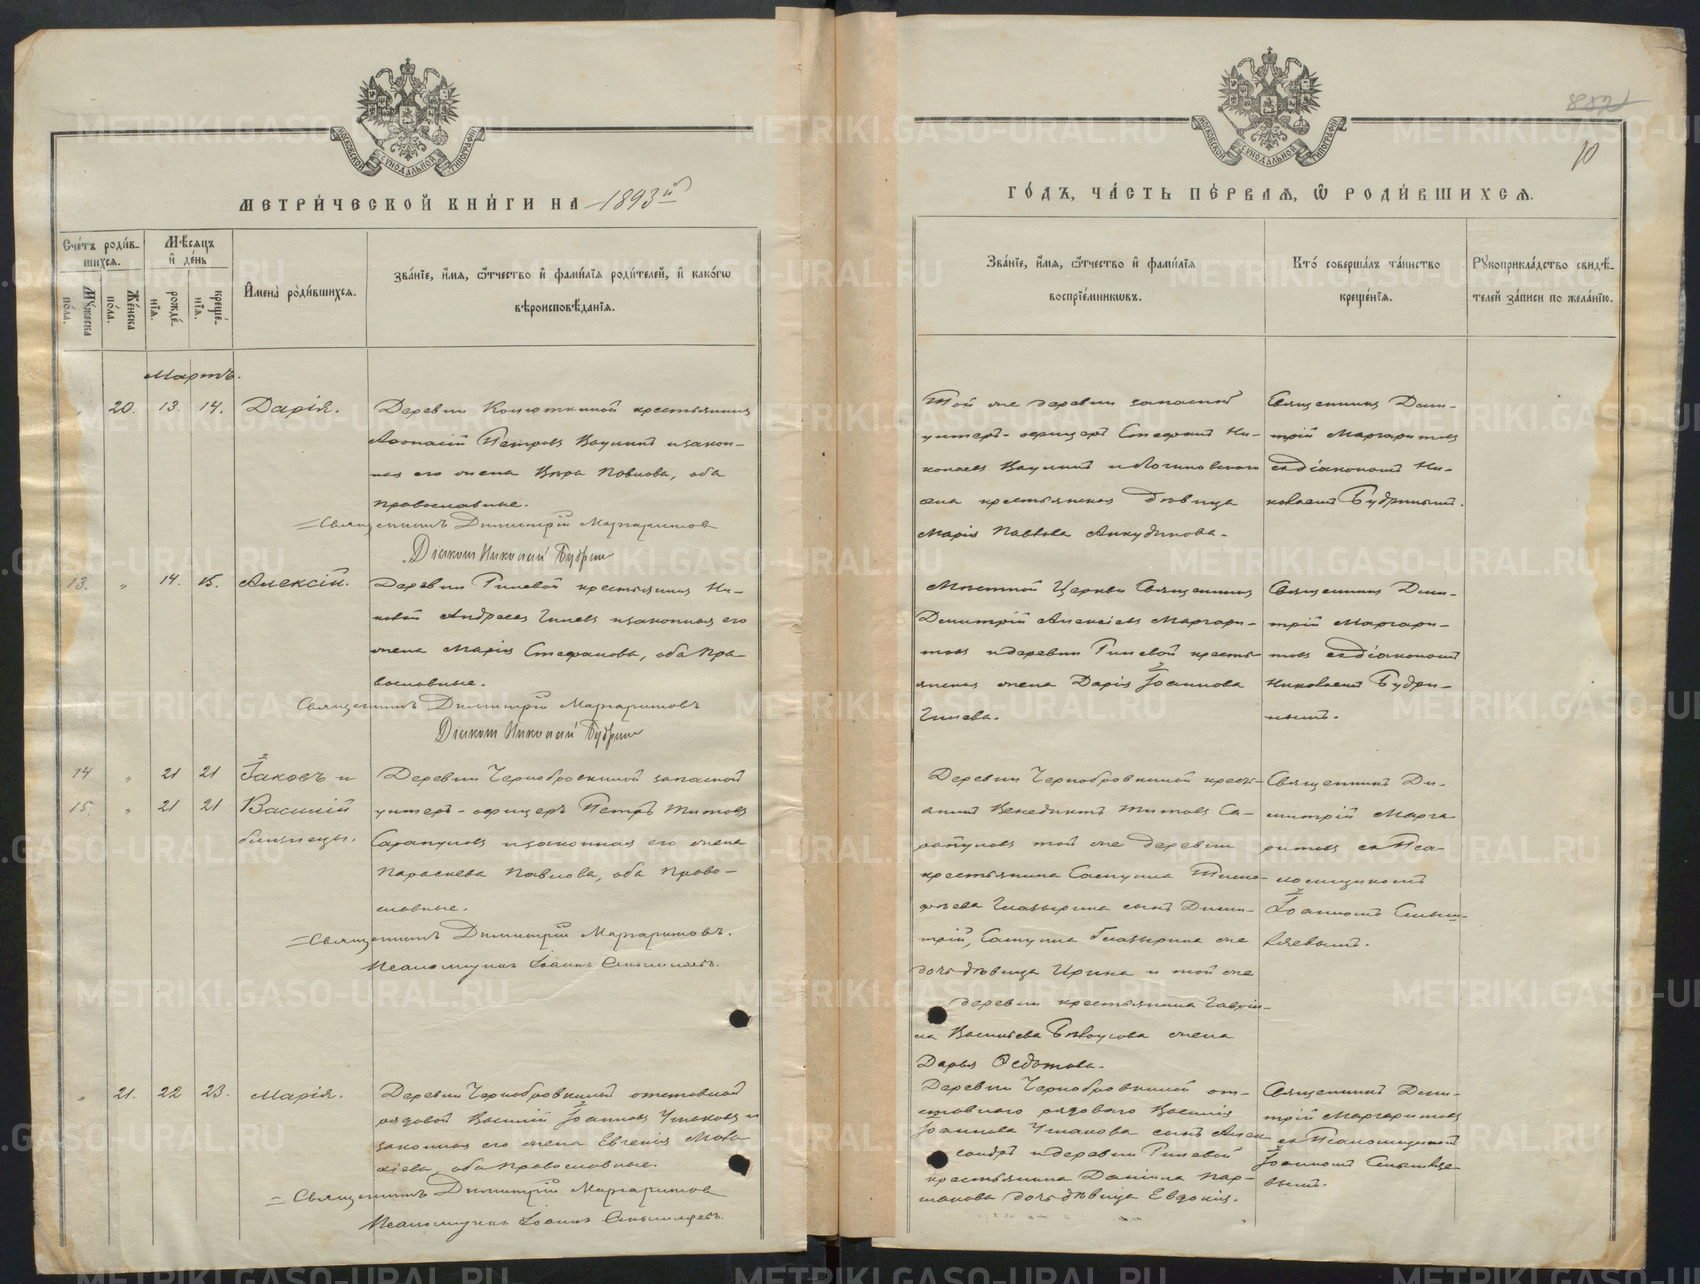 МОСКОВСКОЙ СѴНОДАЛЬНОЙ ТИПОГРАФІИ
МЕТРИ́ЧЕСКОЙ КНИ́ГИ НА 1893й
Сче́тъ роди́в-
шихся.
Мѣ́сяцъ
и҆ де́нь
И҆мена̀ роди́вшихся.
Зва́нїе, и҆́мя, ѻ҆́тчество и҆ фами́лїѧ роди́телей, и҆ како́гѡ
вѣроисповѣ́данїѧ.
Мꙋ́жеска
по́ла.
Же́нска
по́ла.
рожде́-
нїѧ.
креще́-
нїѧ.
Мартъ.
„ 20. 13. 14. Дарія.
Деревни Конюткиной крестьянинъ
Аѳонасій Петровъ Ваулинъ и закон-
ная его жена Вѣра Павлова, оба
православные.
Священникъ Димитрій Маргаритовъ
Діаконъ Николай Будринъ
13. „ 14. 15. Алексій.
Деревни Гилевой крестьянинъ
Андреевъ Гилевъ и законная его
жена Марія Стефанова, оба пра-
вославные.
Священникъ Димитрій Маргаритовъ
Діаконъ Николай Будринъ
14 „ 21 21 Іаковъ и
15. „ 21 21 Василій
близнецы.
Деревни Чернобровкиной запасной
унтеръ-офицеръ Петръ Титовъ
Сарапуловъ и законная его жена
Параскева Павлова, оба право-
славные.
Священникъ Димитрій Маргаритовъ.
Псаломщикъ Іоаннъ
„ 21. 22 23. Марія.
Деревни Чернобровкиной отставной
рядовой Василій Іоанновъ Ушаковъ и
законная его жена Евгенія
оба православные.
Священникъ Димитрій Маргаритовъ
Псаломщикъ Іоаннъ
882
10
МОСКОВСКОЙ СѴНОДАЛЬНОЙ ТИПОГРАФІИ
ГО́ДЪ, ЧА́СТЬ ПЕ́РВАЯ, Ѡ҆ РОДИ́ВШИХСЯ.
Зва́нїе, и҆́мя, ѻ҆́тчество и҆ фами́лїѧ
воспрїе́мникѡвъ.
Кто́ соверша́лъ та́инство
креще́нїѧ.
Рꙋкоприкла́дство свидѣ́-
телей за́писи по жела́нїю.
Той же деревни запасной
унтеръ-офицеръ Стефанъ Ни-
колаевъ Ваулинъ и Логиновского
села крестьянская дѣвица
Марія Павлова Анкудинова.
Священникъ Дми-
трій Маргаритовъ
съ діакономъ Ни-
колаемъ Будринымъ.
Мѣстной Церкви Священникъ
Димитрій Алексіевъ Маргари-
товъ и деревни Гилевой кресть-
янская жена Дарія Іоаннова
Гилева.
Священникъ Дми-
трій Маргари-
товъ съ діакономъ
Николаемъ Будри-
нымъ.
Деревни Чернобровкиной кресть-
янинъ Венедиктъ Титовъ Са-
рапуловъ той же деревни
крестьянина Самуила Тимо-
фѣева Глазырина сынъ Дими-
трій, Самуила Глазырина же
дочь дѣвица Ирина и той же
деревни крестьянина Гаврі-
ла Васильева Бѣлоусова жена
Дарья Ѳедотова.
Священникъ Ди-
митрій Марга
ритовъ съ Пса-
ломщикомъ
Іоанномъ
Деревни Чернобровкиной от-
ставного рядового Василія
Іоаннова Ушакова сынъ Алек
сандръ и деревни Гилевой
крестьянина Даніила Пар-
шакова дочь дѣвица Евдокія.
Священникъ Дми-
трій Маргаритовъ
съ Псаломщикомъ
Іоанномъ
METRIKI.GASO-URAL.RU